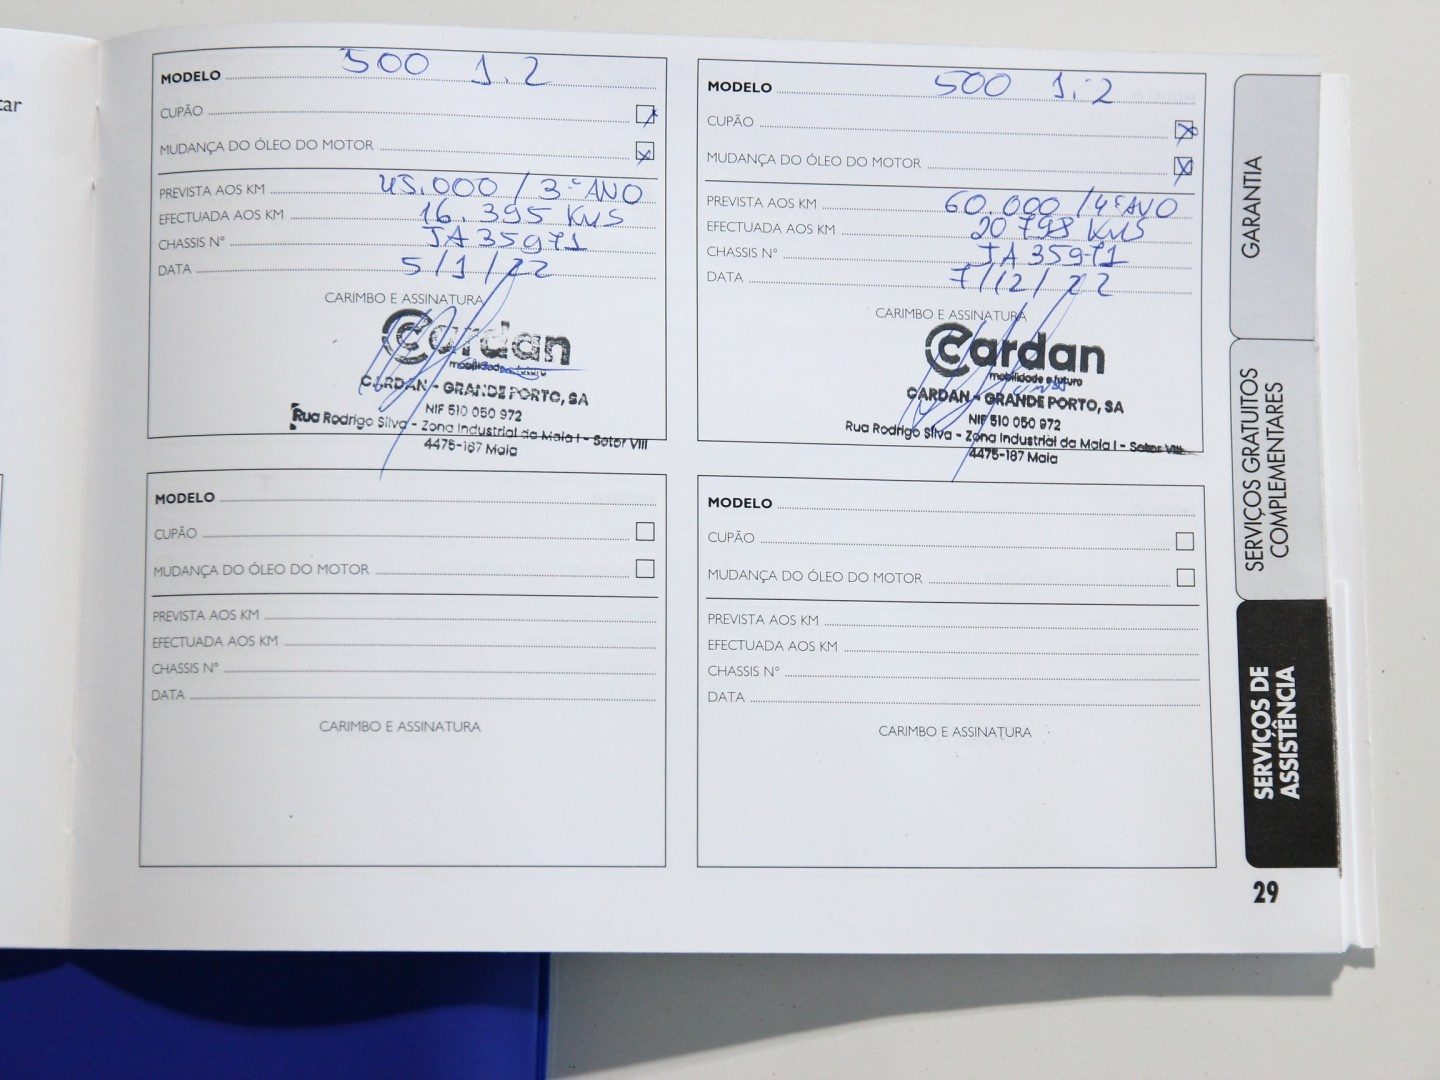 car
MODELO 500 1.2
CUPÃO
MUDANÇA DO ÓLEO DO MOTOR
PREVISTA AOS KM 45.000 / 3.º ANO
EFECTUADA AOS KM 16.395 KMS
CHASSIS Nº JA35971
DATA 5/1/22
CARIMBO E ASSINATURA
Cardan
mobilidade e futuro
CARDAN - GRANDE PORTO, SA
NIF 510 050 972
Rua Rodrigo Silva - Zona Industrial da Maia I - Setor VIII
4475-187 Maia
MODELO 500 1.2
CUPÃO
MUDANÇA DO ÓLEO DO MOTOR
PREVISTA AOS KM 60.000 / 4º ANO
EFECTUADA AOS KM 20798 KMS
CHASSIS Nº JA35971
DATA 7/12/22
CARIMBO E ASSINATURA
Cardan
mobilidade e futuro
CARDAN - GRANDE PORTO, SA
NIF 510 050 972
Rua Rodrigo Silva - Zona Industrial da Maia I - Setor VIII
4475-187 Maia
MODELO
CUPÃO
MUDANÇA DO ÓLEO DO MOTOR
PREVISTA AOS KM
EFECTUADA AOS KM
CHASSIS Nº
DATA
CARIMBO E ASSINATURA
MODELO
CUPÃO
MUDANÇA DO ÓLEO DO MOTOR
PREVISTA AOS KM
EFECTUADA AOS KM
CHASSIS Nº
DATA
CARIMBO E ASSINATURA
GARANTIA
SERVIÇOS GRATUITOS
COMPLEMENTARES
SERVIÇOS DE
ASSISTÊNCIA
29